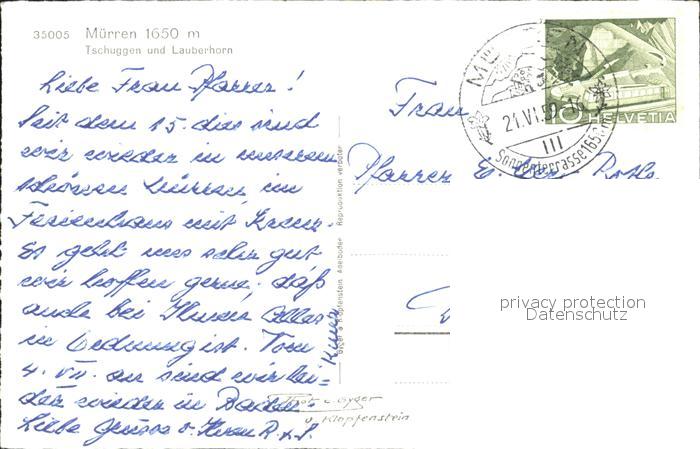 35005 Mürren 1650 m
Tschuggen und Lauberhorn
Liebe Frau Pfarrer!
Seit dem 15. dies sind
wir wieder in unserem
schönen Mürren im
Ferienhaus mit
Es geht uns sehr gut
wir hoffen gerne, daß
auch bei Ihnen alles
in Ordnung ist. Vom
4. VII. an sind wir lei=
der wieder in Baden
Liebe Grüsse v. Ihren R. & S.
Gyger & Klopfenstein Adelboden Reproduktion verboten
Gyger
u. Klopfenstein
Frau
Pfarrer
21.VI.59
III
Sonnenterrasse 1650
10 HELVETIA
privacy protection
Datenschutz